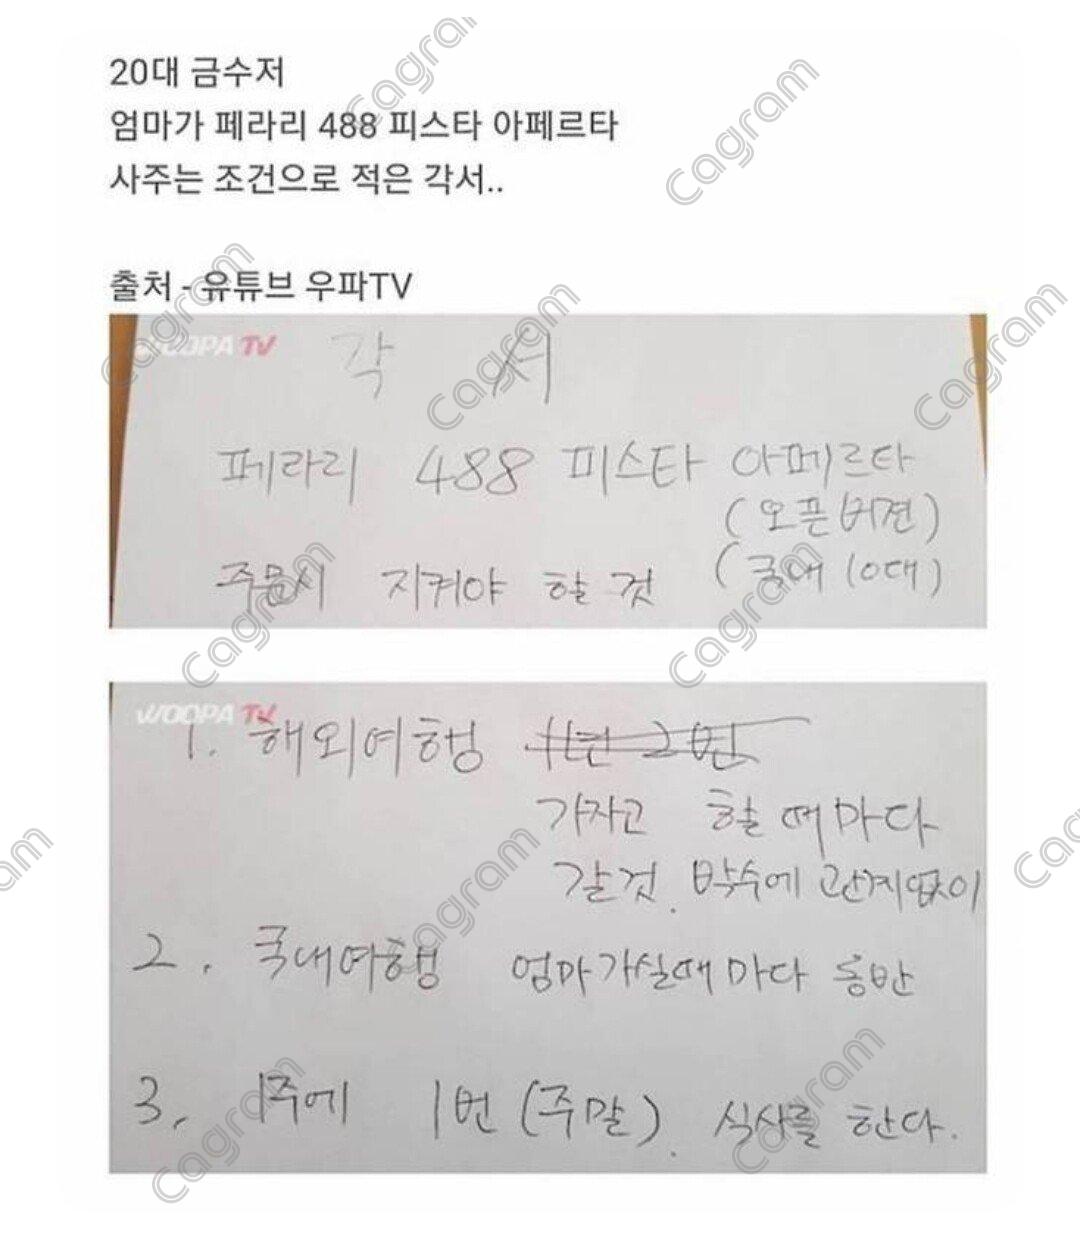 20대 금수저
엄마가 페라리 488 피스타 아페르타
사주는 조건으로 적은 각서..
출처 - 유튜브 우파TV
WOOPA TV
각 서
페라리 488 피스타 아페르타
(오픈버젼)
주문시 지켜야 할 것 (국내 10대)
WOOPA TV
1. 해외여행 1년 2번
가자고 할때마다
갈것. 박수에 관계없이
2. 국내여행 엄마가실때마다 동반
3. 1주에 1번 (주말). 식사를 한다.
Cagram
Cagram
Cagram
Cagram
Cagram
Cagram
Cagram
Cagram
Cagram
Cagram
Cagram